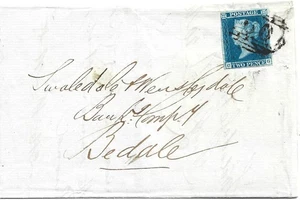 POSTAGE
TWO PENCE
Swaledale & Wensleydale
Bank: Comp.y
Bedale